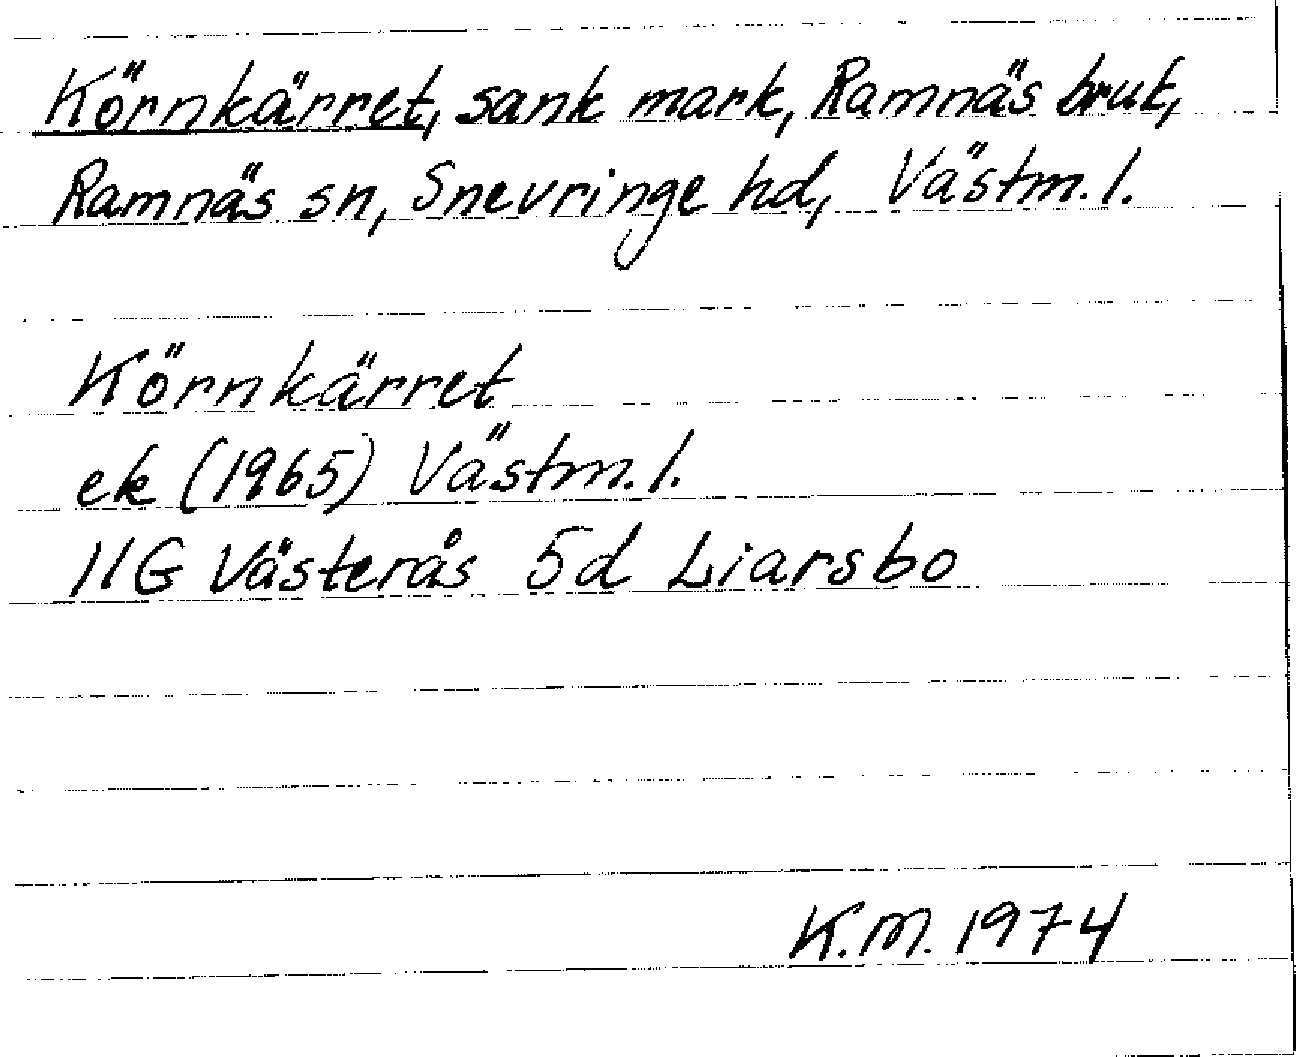 Körnkärret, sank mark, Ramnäs bruk,
Ramnäs sn, Snevringe hd, Västm. l.
Körnkärret
ek (1965) Västm. l.
11G Västerås 5d Liarsbo
K.M. 1974